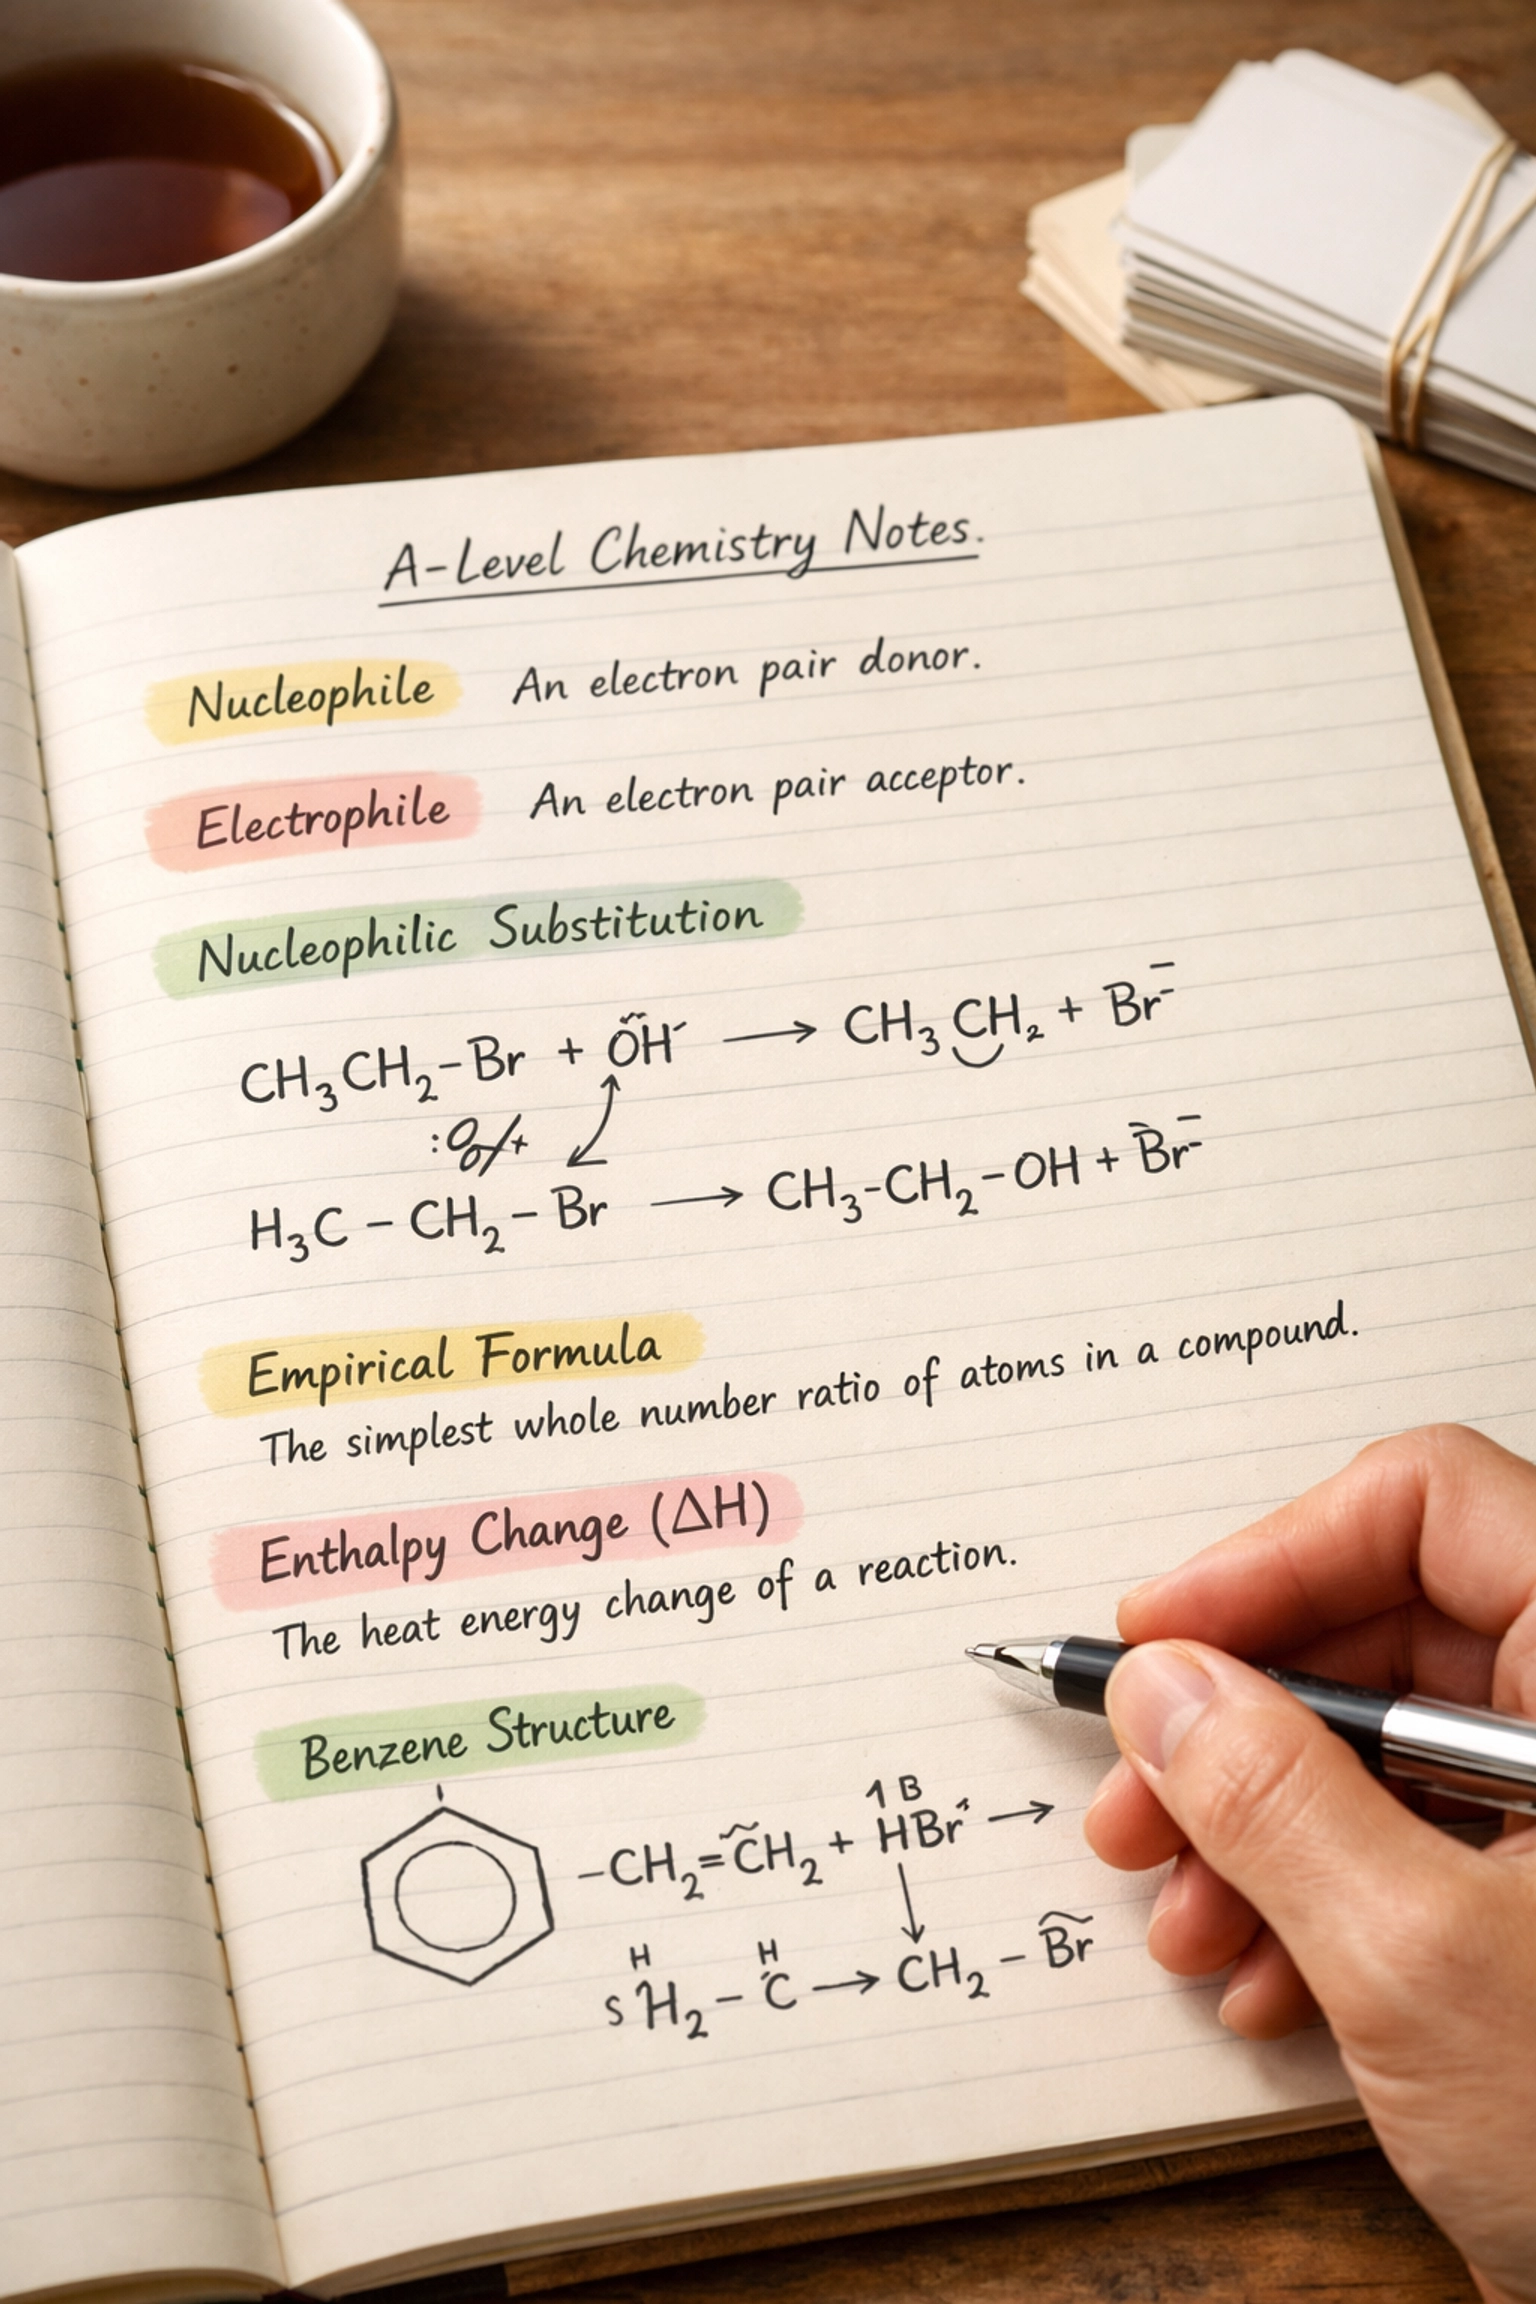 A-Level Chemistry Notes.
Nucleophile An electron pair donor.
Electrophile An electron pair acceptor.
Nucleophilic Substitution
CH₃CH₂-Br + OH⁻ → CH₃CH₂ + Br⁻
H₃C - CH₂ - Br → CH₃-CH₂-OH + Br⁻
Empirical Formula
The simplest whole number ratio of atoms in a compound.
Enthalpy Change (ΔH)
The heat energy change of a reaction.
Benzene Structure
1 B
-CH₂=CH₂ + HBr →
H H
s H₂ - C → CH₂ - Br